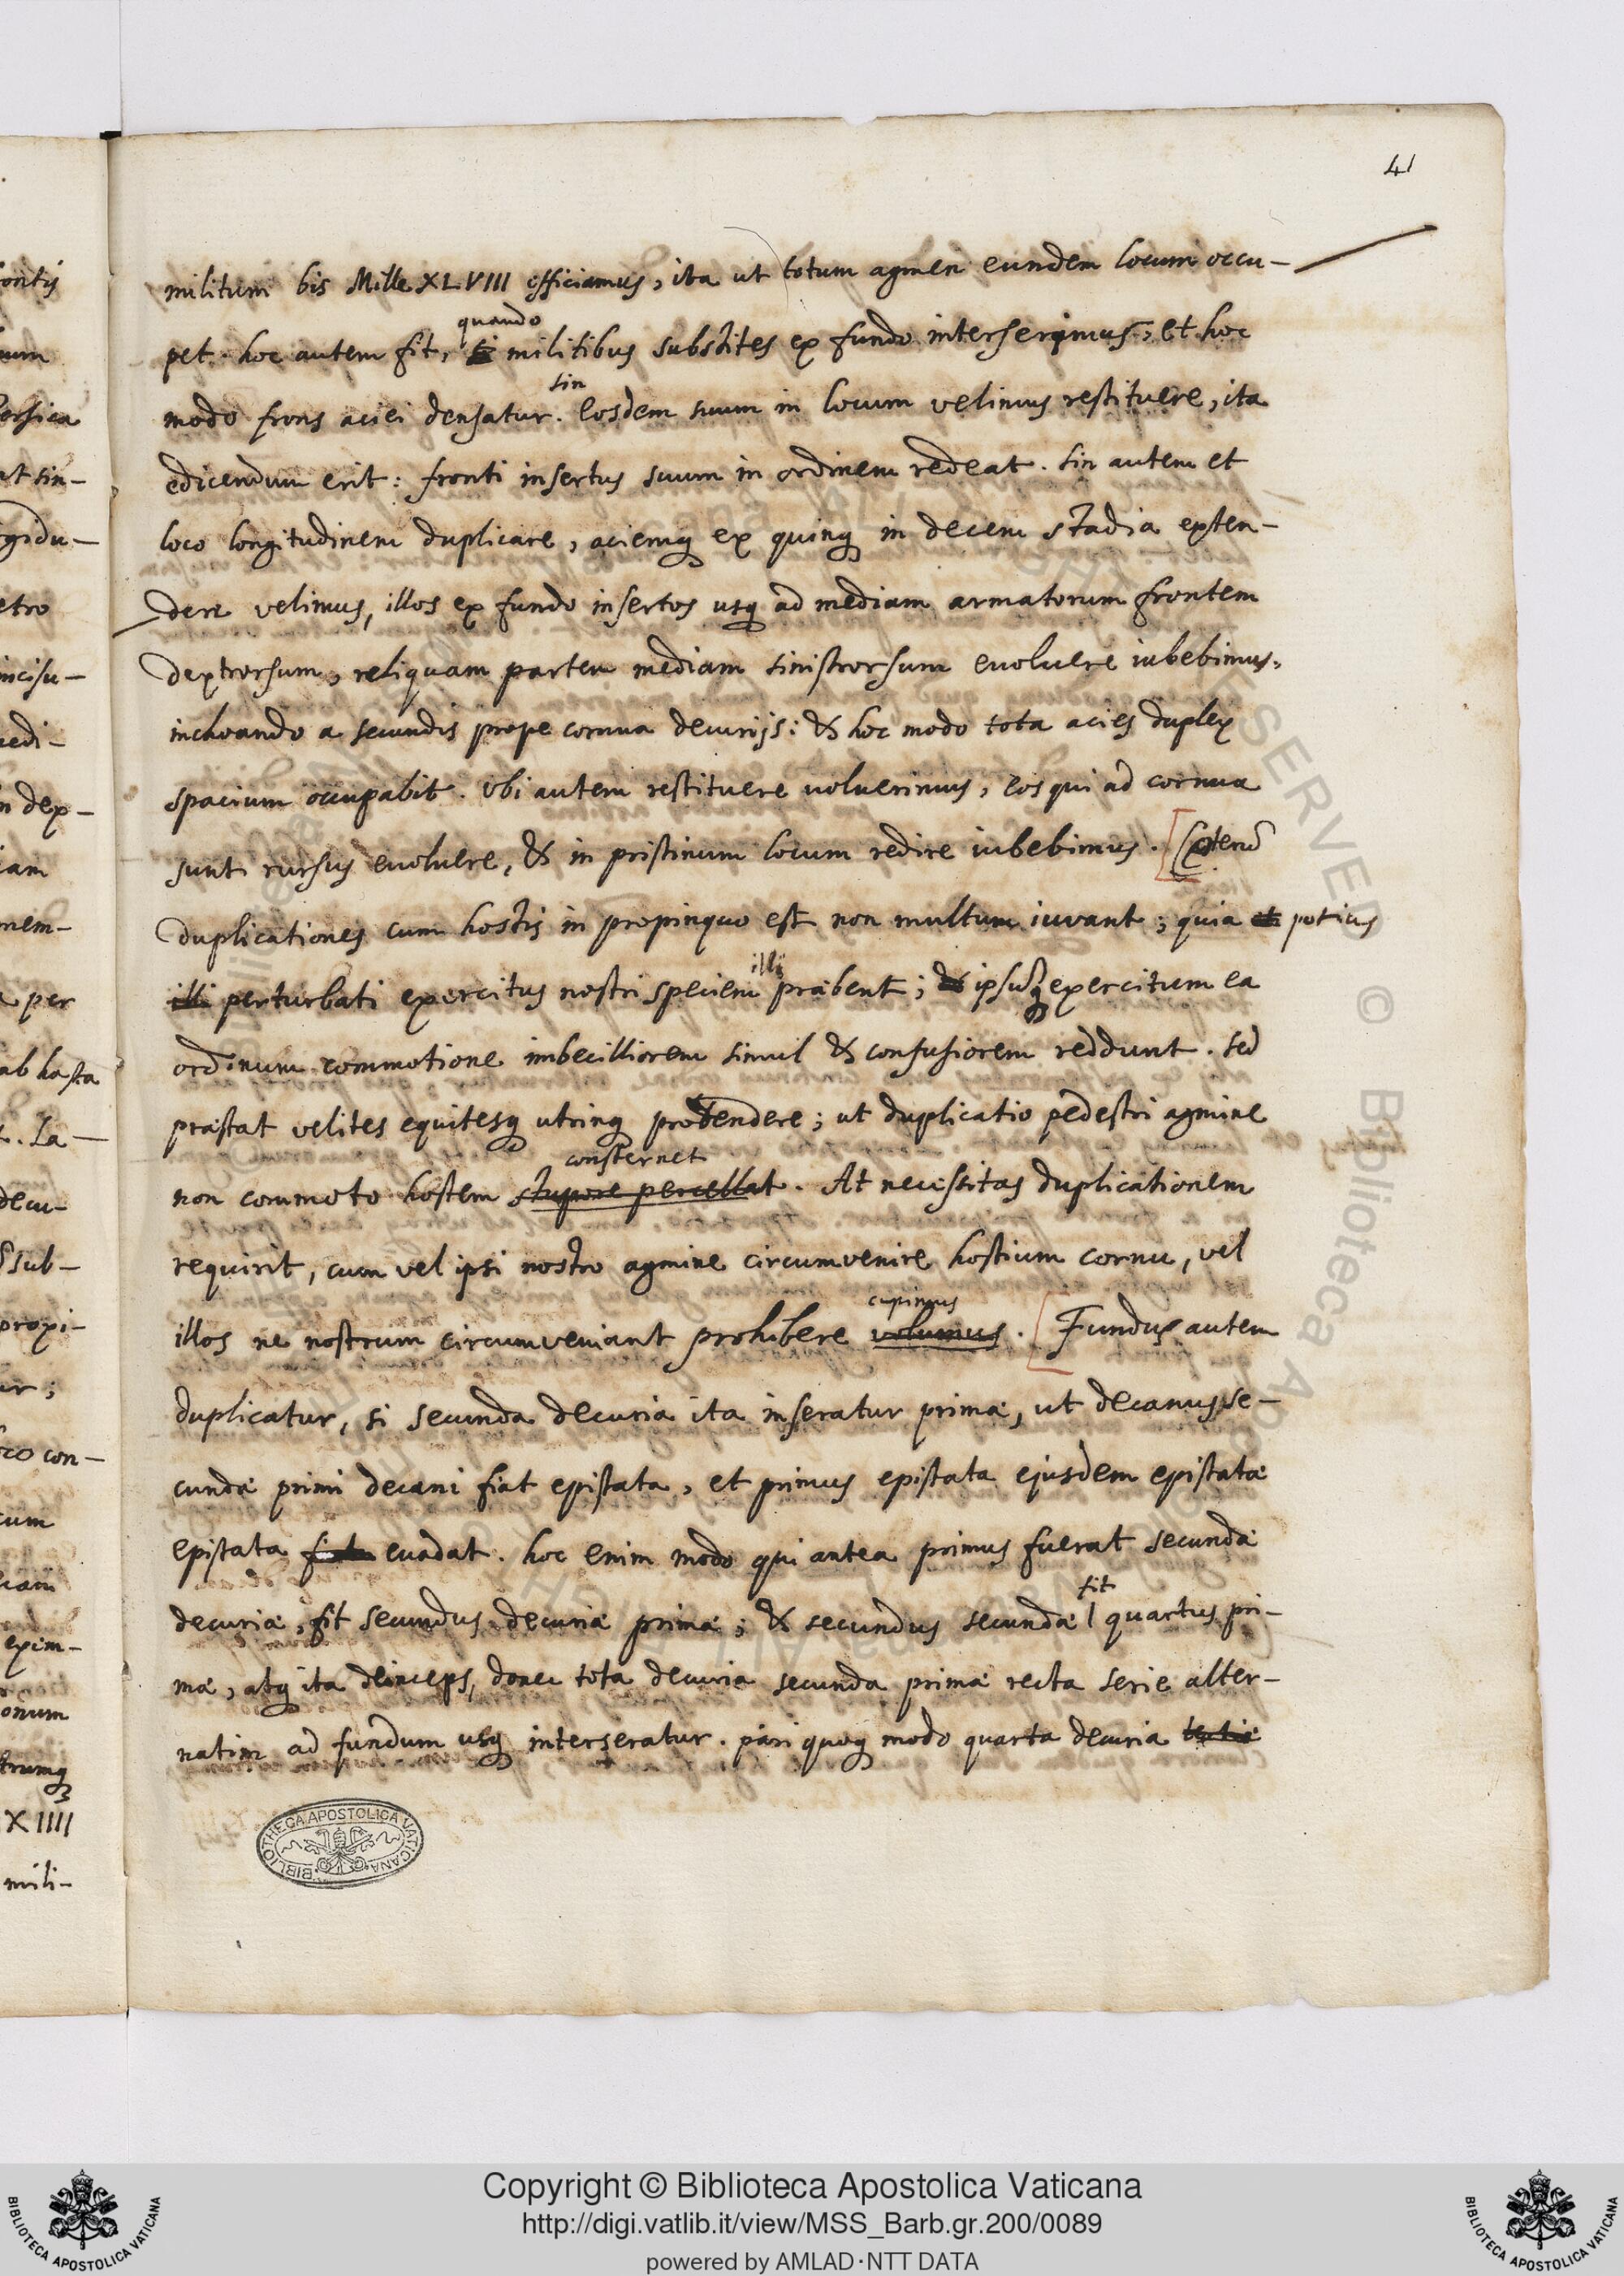 41
militum bis Mille XLVIII efficiamus, ita ut totum agmen eundem locum occu-
pet. hoc autem fit, quando militibus substites ex fundo interserimus, et hoc
modo frons aciei densatur. sin eosdem suum in locum velimus restituere, ita
edicendum erit: fronti insertus suum in ordinem redeat. sin autem et
loco longitudinem duplicare, aciemq ex quinq in decem stadia exten-
dere velimus, illos ex fundo insertos usq ad mediam armatorum frontem
dextrorsum, reliquam partem mediam sinistrorsum evoluere iubebimus,
inchoando a secundis prope cornua decurijs: & hoc modo tota acies duplex
spacium occupabit. Vbi autem restituere uoluerimus, eos qui ad cornua
sunt rursus evoluere, & in pristinum locum redire iubebimus. [Ceterũ
duplicationes cum hostis in propinquo est non multum iuvant; quia et potius
illi perturbati exercitus nostri speciem illi præbent; & ipsũq exercitum ea
ordinum commotione imbecilliorem simul & confusiorem reddunt. sed
præstat velites equitesq utrinq protendere; ut duplicatio pedestri agmine
consternet
non commoto hostem stupore percellat. At necessitas duplicationem
requirit, cum vel ipsi nostro agmine circumvenire hostium cornu, vel
cupimus
illos ne nostrum circumveniant prohibere volumus. [Fundus autem
duplicatur, si secunda decuria ita inseratur primæ, ut decanus se-
cundæ primi decani fiat epistata, et primus epistata ejusdem epistatæ
epistata fiat evadat. hoc enim modo qui antea primus fuerat secundæ
decuriæ, fit secundus decuriæ primæ; & secundus secundæ fit quartus pri-
mæ, atq ita deinceps, donec tota decuria secunda primæ recta serie alter-
natim ad fundum usq interseratur. pari quoq modo quarta decuria tertiæ
BIBLIOTHECA APOSTOLICA VATICANA
Copyright © Biblioteca Apostolica Vaticana
http://digi.vatlib.it/view/MSS_Barb.gr.200/0089
powered by AMLAD·NTT DATA
BIBLIOTECA APOSTOLICA VATICANA
BIBLIOTECA APOSTOLICA VATICANA